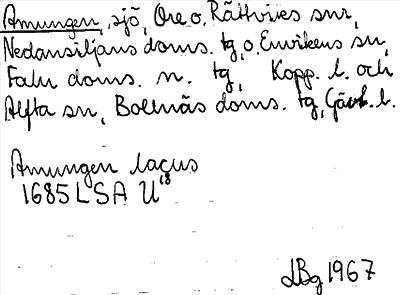 Amungen, sjö, Ore o. Rättviks snr,
Nedansiljans doms. tg, o. Envikens sn,
Falu doms. n. tg, Kopp. l. och
Alfta sn, Bollnäs doms. tg, Gävl. l.
Amungen lacus
1685 LSA U18
LBg 1967